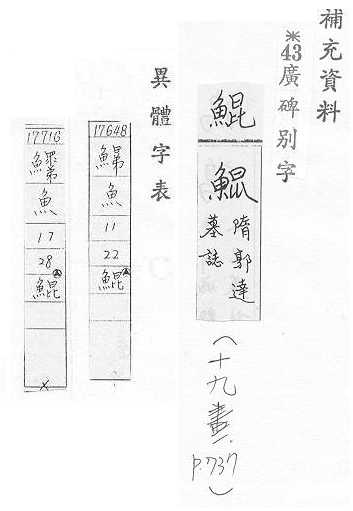 補充資料
※43廣碑別字
鯤
鯤
隋郭達
墓誌
(十九畫、
P.737)
異體字表
17648
魚
11
22
鯤
17716
魚
17
28
鯤